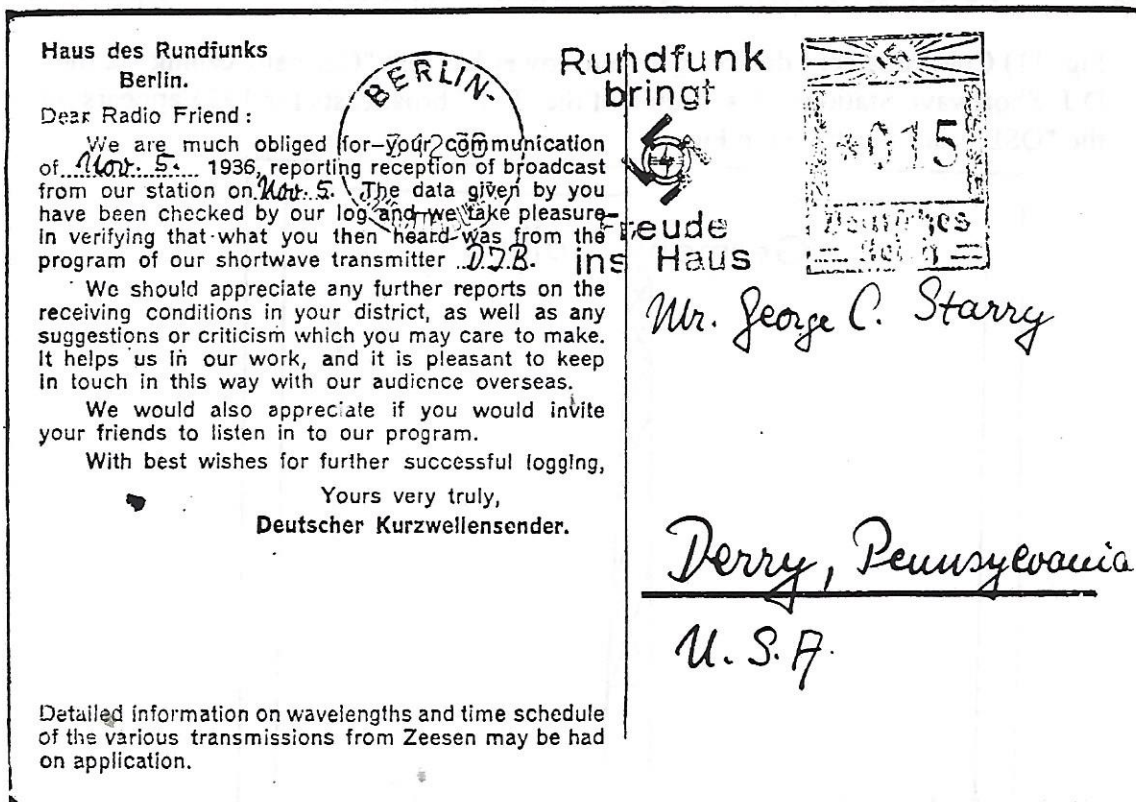 Haus des Rundfunks
Berlin.
Dear Radio Friend :
We are much obliged for your communication
of Nov. 5. 1936, reporting reception of broadcast
from our station on Nov. 5. The data given by you
have been checked by our log and we take pleasure
in verifying that what you then heard was from the
program of our shortwave transmitter DJB.
We should appreciate any further reports on the
receiving conditions in your district, as well as any
suggestions or criticism which you may care to make.
It helps us in our work, and it is pleasant to keep
in touch in this way with our audience overseas.
We would also appreciate if you would invite
your friends to listen in to our program.
With best wishes for further successful logging,
Yours very truly,
Deutscher Kurzwellensender.
Detailed information on wavelengths and time schedule
of the various transmissions from Zeesen may be had
on application.
BERLIN-
Rundfunk
bringt
Freude
ins Haus
015
Deutsches
Reich
Mr. George C. Starry
Derry, Pennsylvania
U. S. A.